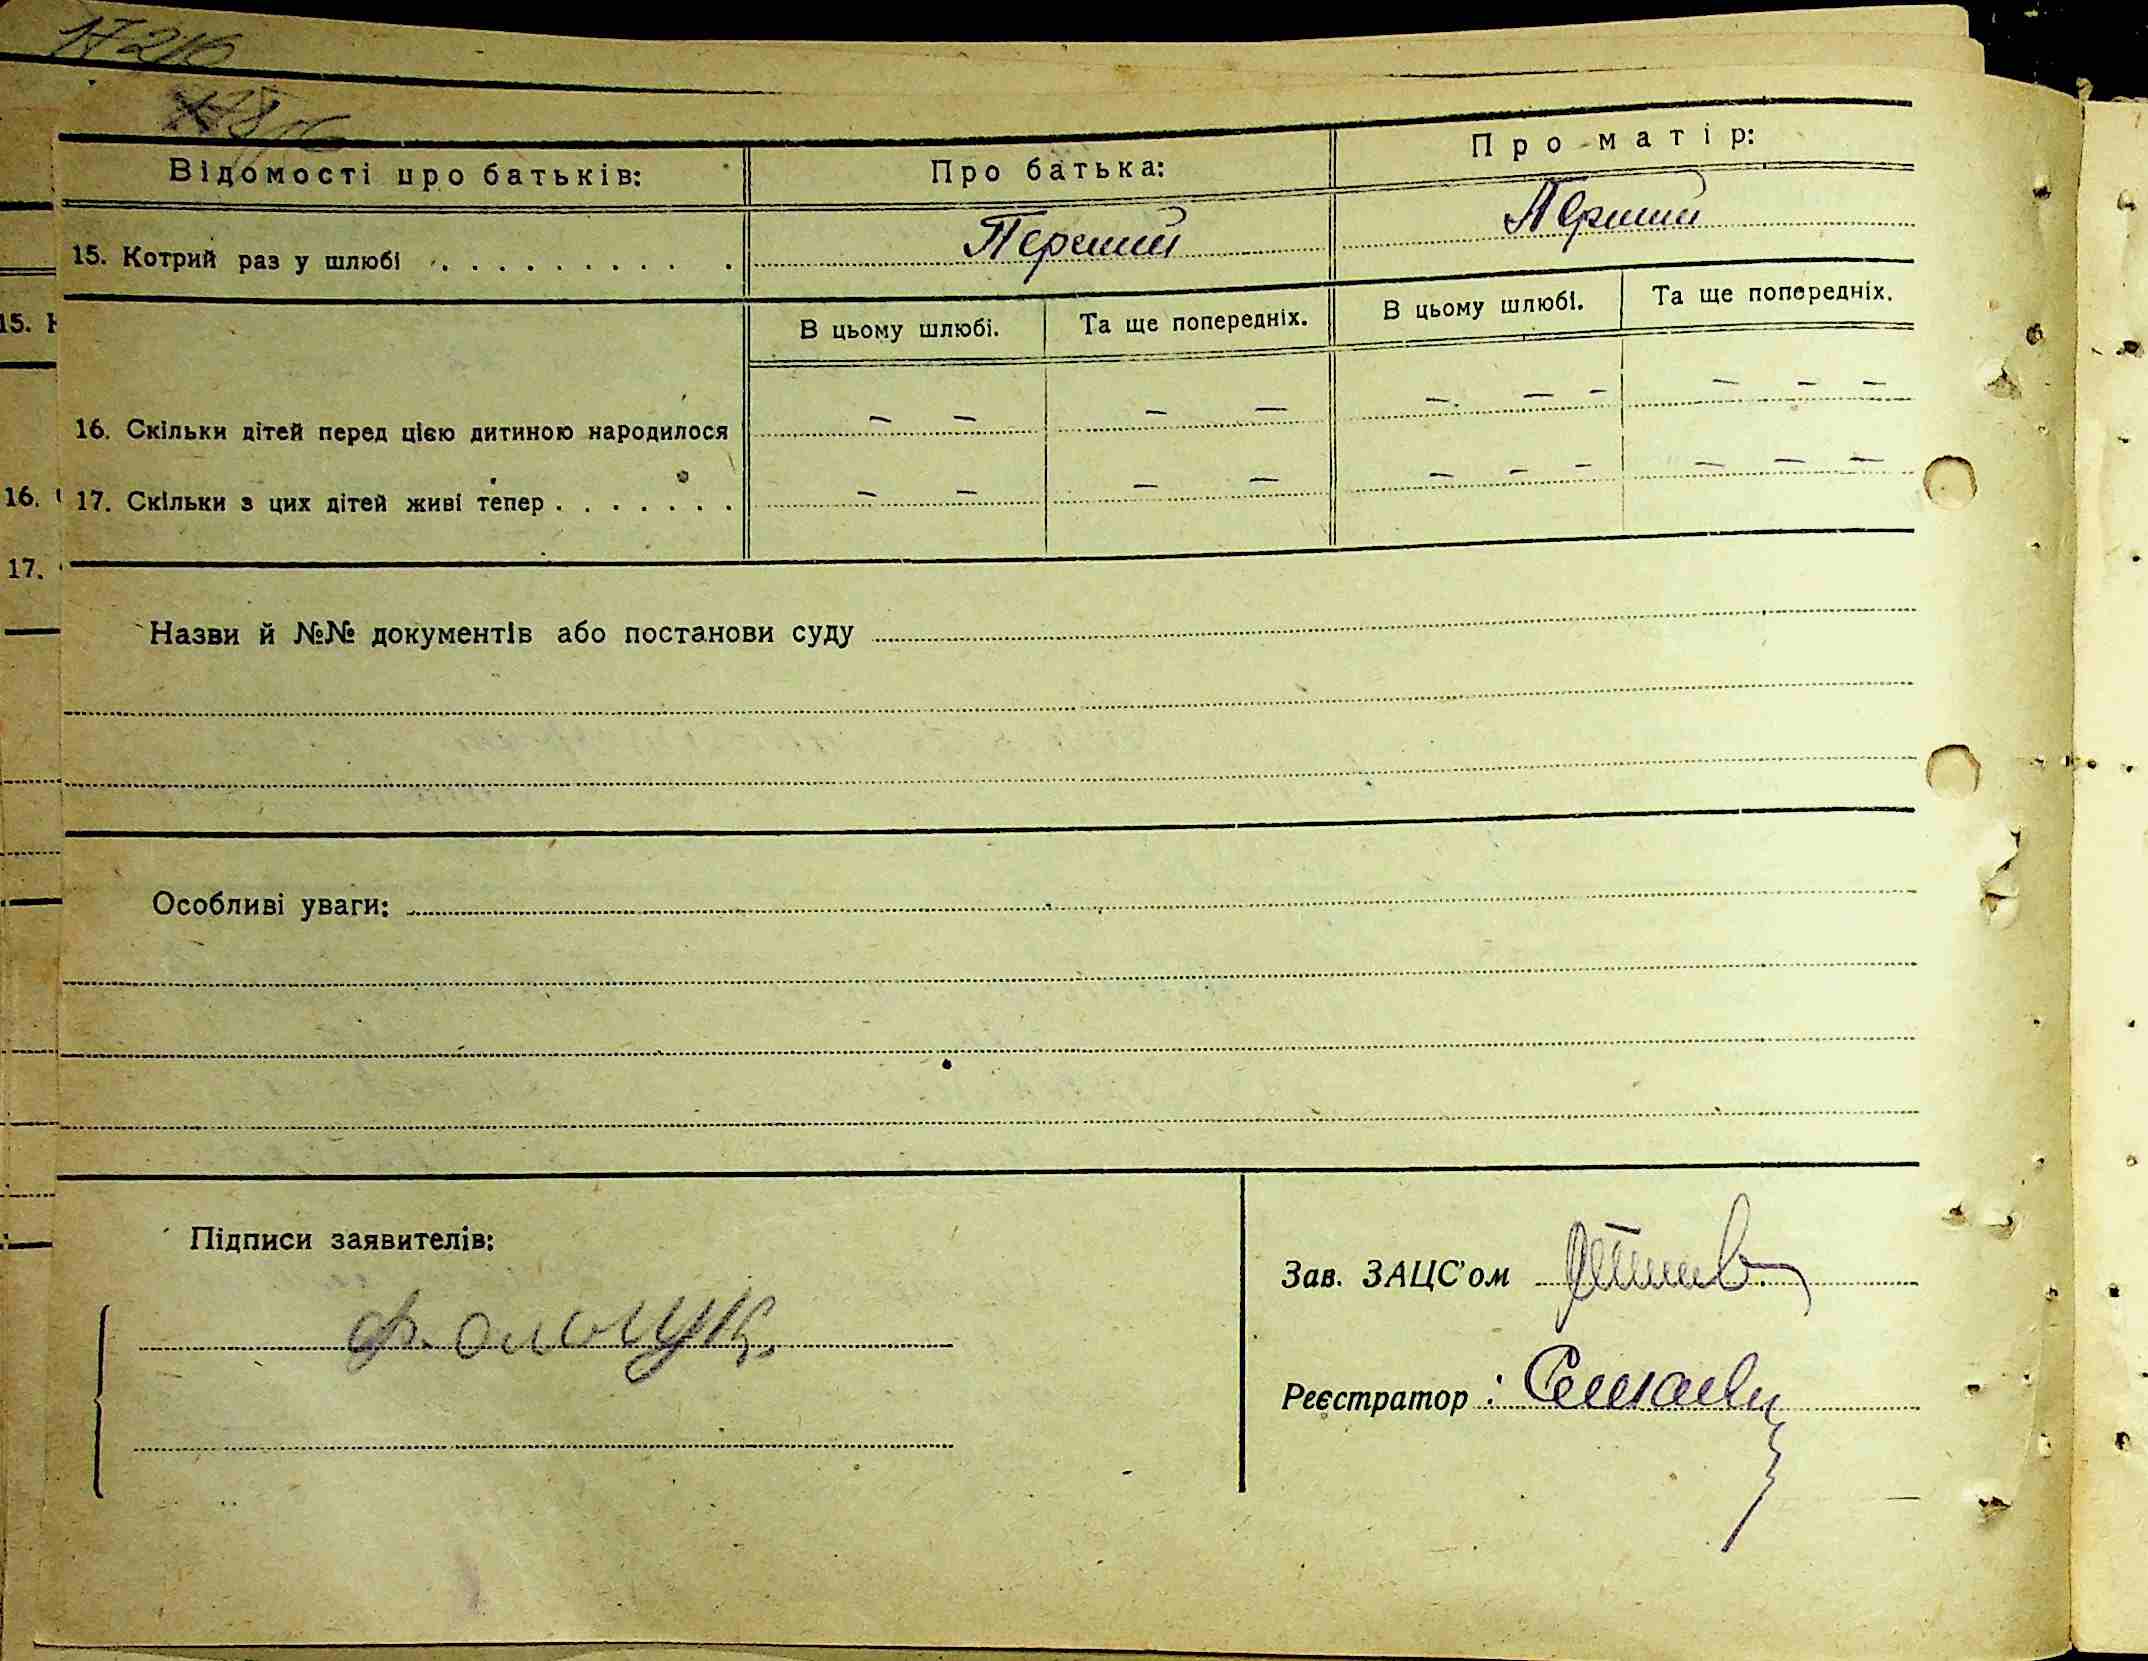 17216
Відомості про батьків:
Про батька:
Про матір:
15. Котрий раз у шлюбі
Перший
Перший
В цьому шлюбі.
Та ще попередніх.
В цьому шлюбі.
Та ще попередніх.
16. Скільки дітей перед цією дитиною народилося
— —
— —
— — —
— — —
17. Скільки з цих дітей живі тепер
— —
— —
— — —
— — —
15.
16.
17.
Назви й №№ документів або постанови суду
Особливі уваги:
Підписи заявителів:
Зав. ЗАЦС'ом
Реєстратор :